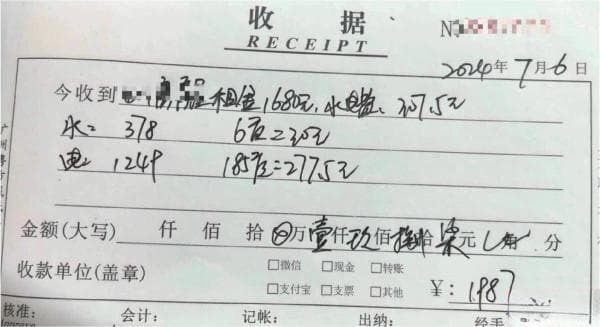 收据
RECEIPT
№
2024年7月6日
今收到 租金1680元，水电费：307.5元
水：378 6度=30元
电：1249 185度=277.5元
金额(大写) 仟 佰 拾 ⊗万壹仟玖佰捌拾柒元 角 分
收款单位(盖章) □微信 □现金 □转账
□支付宝 □支票 □其他 ¥：1987
核准： 会计： 记帐： 出纳： 经手